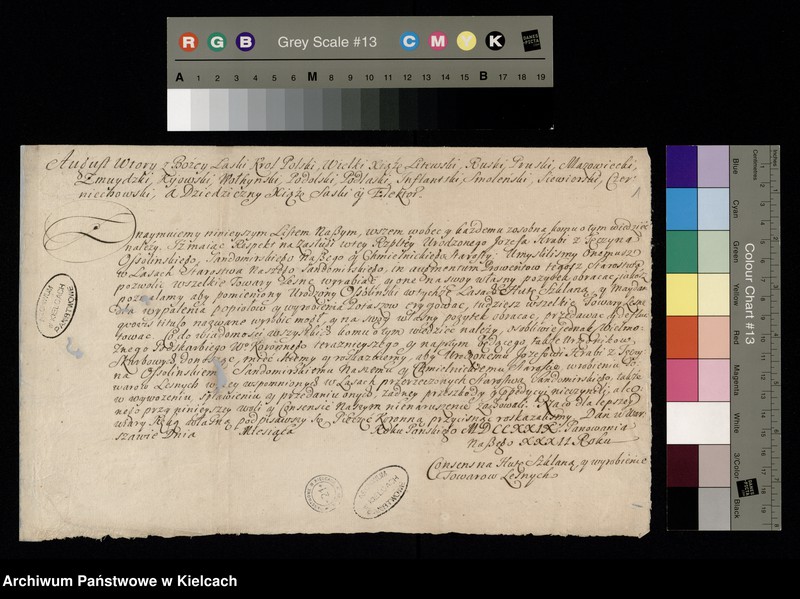 R G B Grey Scale #13 C M Y K
A 1 2 3 4 5 6 M 8 9 10 11 12 13 14 15 B 17 18 19
August Wtory z Bozey Laski Krol Polski, Wielki Xiąże Litewski, Ruski, Pruski, Mazowiecki,
Zmuydzki, Kyowski, Wołhyński, Podolski, Podlaski, Inflantski, Smolenski, Siewierski, Czer
niechowski, a Dziedziczny Xiąże Saski y Elektor.
Oznaymuiemy ninieyszym Listem Naszym, wszem wobec y kazdemu zosobna komu otym wiedzieć
nalezy. Iz maiąc Respekt na zasługi w tey Rzpltey Urodzonego Jozefa Hrabi z Tęczyna
Ossolinskiego, Sandomirskiego Naszego y Chmielnickiego Starosty; Umyslilismy onemusz
w Lasach Starostwa Naszego Sandomirskiego, in augmentum Proventow tegosz Starostwa
pozwolić wszelkie Towary Lesne wyrabiać, y one na swoy własny pozytek obracać, iakosz
pozwalamy aby pomieniony Urodzony Ossolinski w tychze Lasach Hutę Szklaną, y Maydan
dla wypalenia popiołow y wyrobienia Potaszow erygować, tudziesz wszelkie Towary Lesne
quovis titulo nazwane wyrobić mogł, a na swoy własny pozytek obracać, przedawać, y defluitować.
Co do wiadomosci wszystkich komu otym wiedzieć nalezy, osobliwie iednak Wielmoznego
Podskarbiego Wo Koronnego terazniejszego, y napotym będącego, także Urzędnikow
Skarbowych donosząc, mieć chcemy y roskazuiemy, aby Urodzonemu Jozefowi Hrabi z Tęczyna
Ossolinskiemu Sandomirskiemu Naszemu y Chmielnickiemu Staroscie w robieniu Towarow
Lesnych wyzey wspomnionych w Lasach przerzeczonych Starostwa Sandomirskiego, także
w wywozeniu, spławieniu y przedaniu onych, zadney przeszkody y oppozycyi nieczynili, ale
onego przy ninieyszey woli y Consensie Naszym nienaruszenie zachowali. Na co dla lepszey
wiary Ręką własną podpisawszy się Pieczęć Koronną przycisnąć roskazalismy. Dan w Warszawie
Dnia Miesiąca Roku Panskiego MDCCXXIX Panowania
Naszego XXXII Roku
Consens na Hutę Szklaną y wyrobienie
Towarow Lesnych
Colour Chart #13
Centimetres
Inches
Blue Cyan Green Yellow Red Magenta White 3/Color Black
Archiwum Państwowe w Kielcach